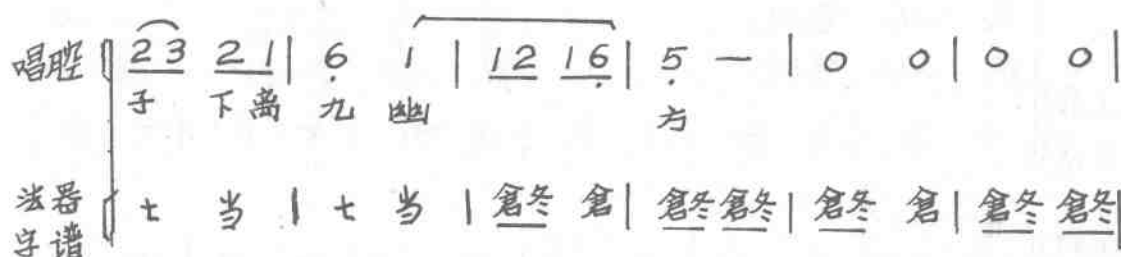 唱腔 23 21 | 6 1 | 12 16 | 5 — | 0 0 | 0 0 |
子 下离 九 幽 方
法器字谱 七 当 | 七 当 | 倉冬 倉 | 倉冬 倉冬 | 倉冬 倉 | 倉冬 倉冬 |